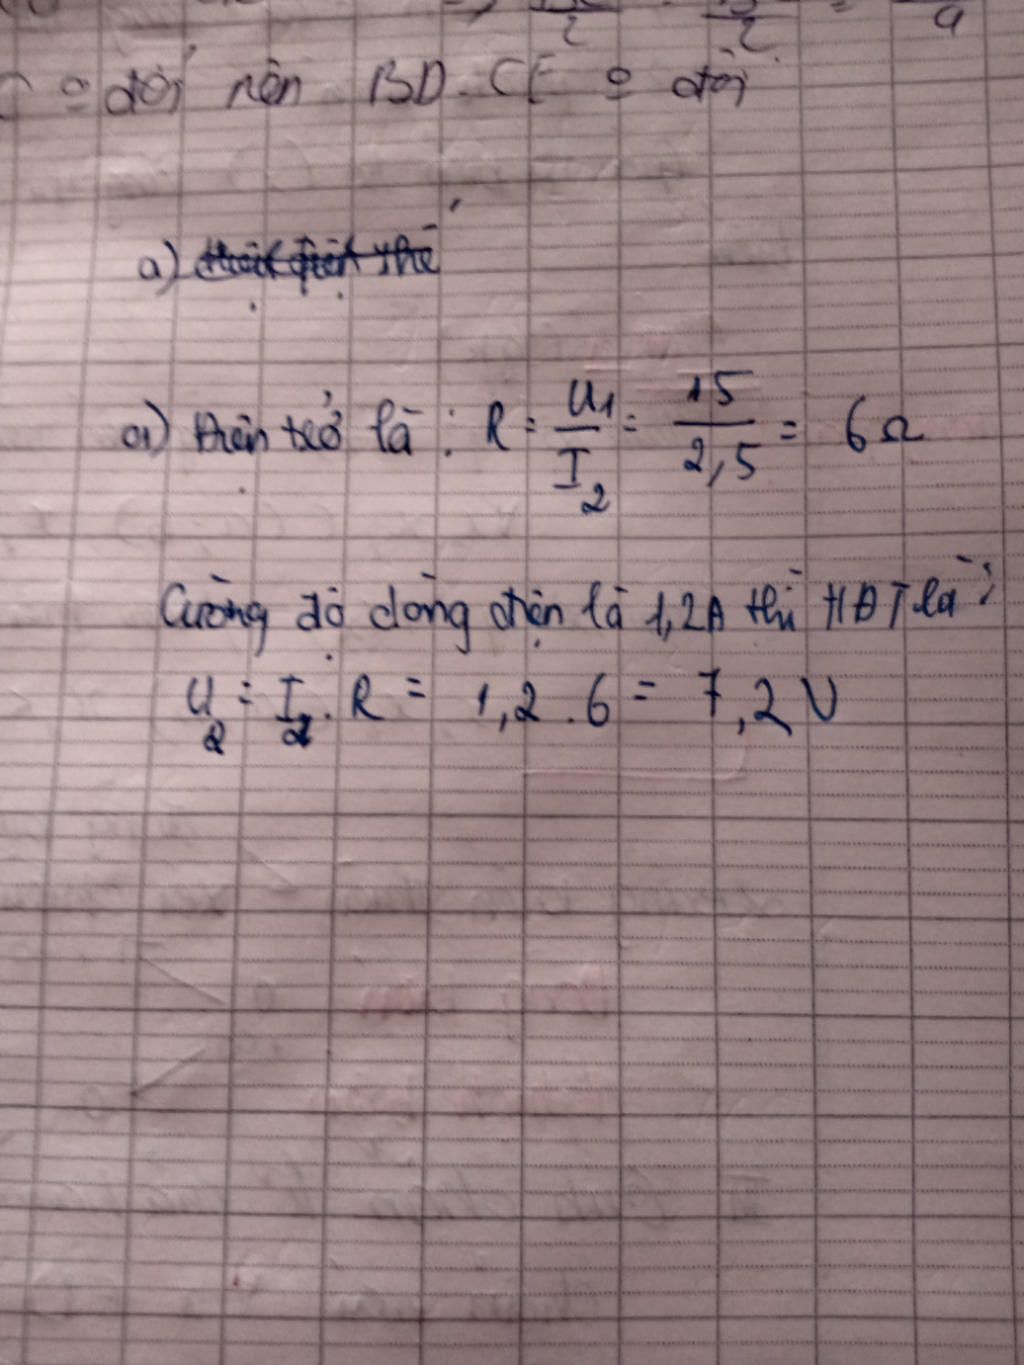 2 2 = 4
đổi nên BD.CE đổi
a)
a) Điện trở là : R = U1/I2 = 15/2,5 = 6Ω
Cường độ dòng điện là 1,2A thì HĐT là :
U2 = I2 . R = 1,2 . 6 = 7,2 V